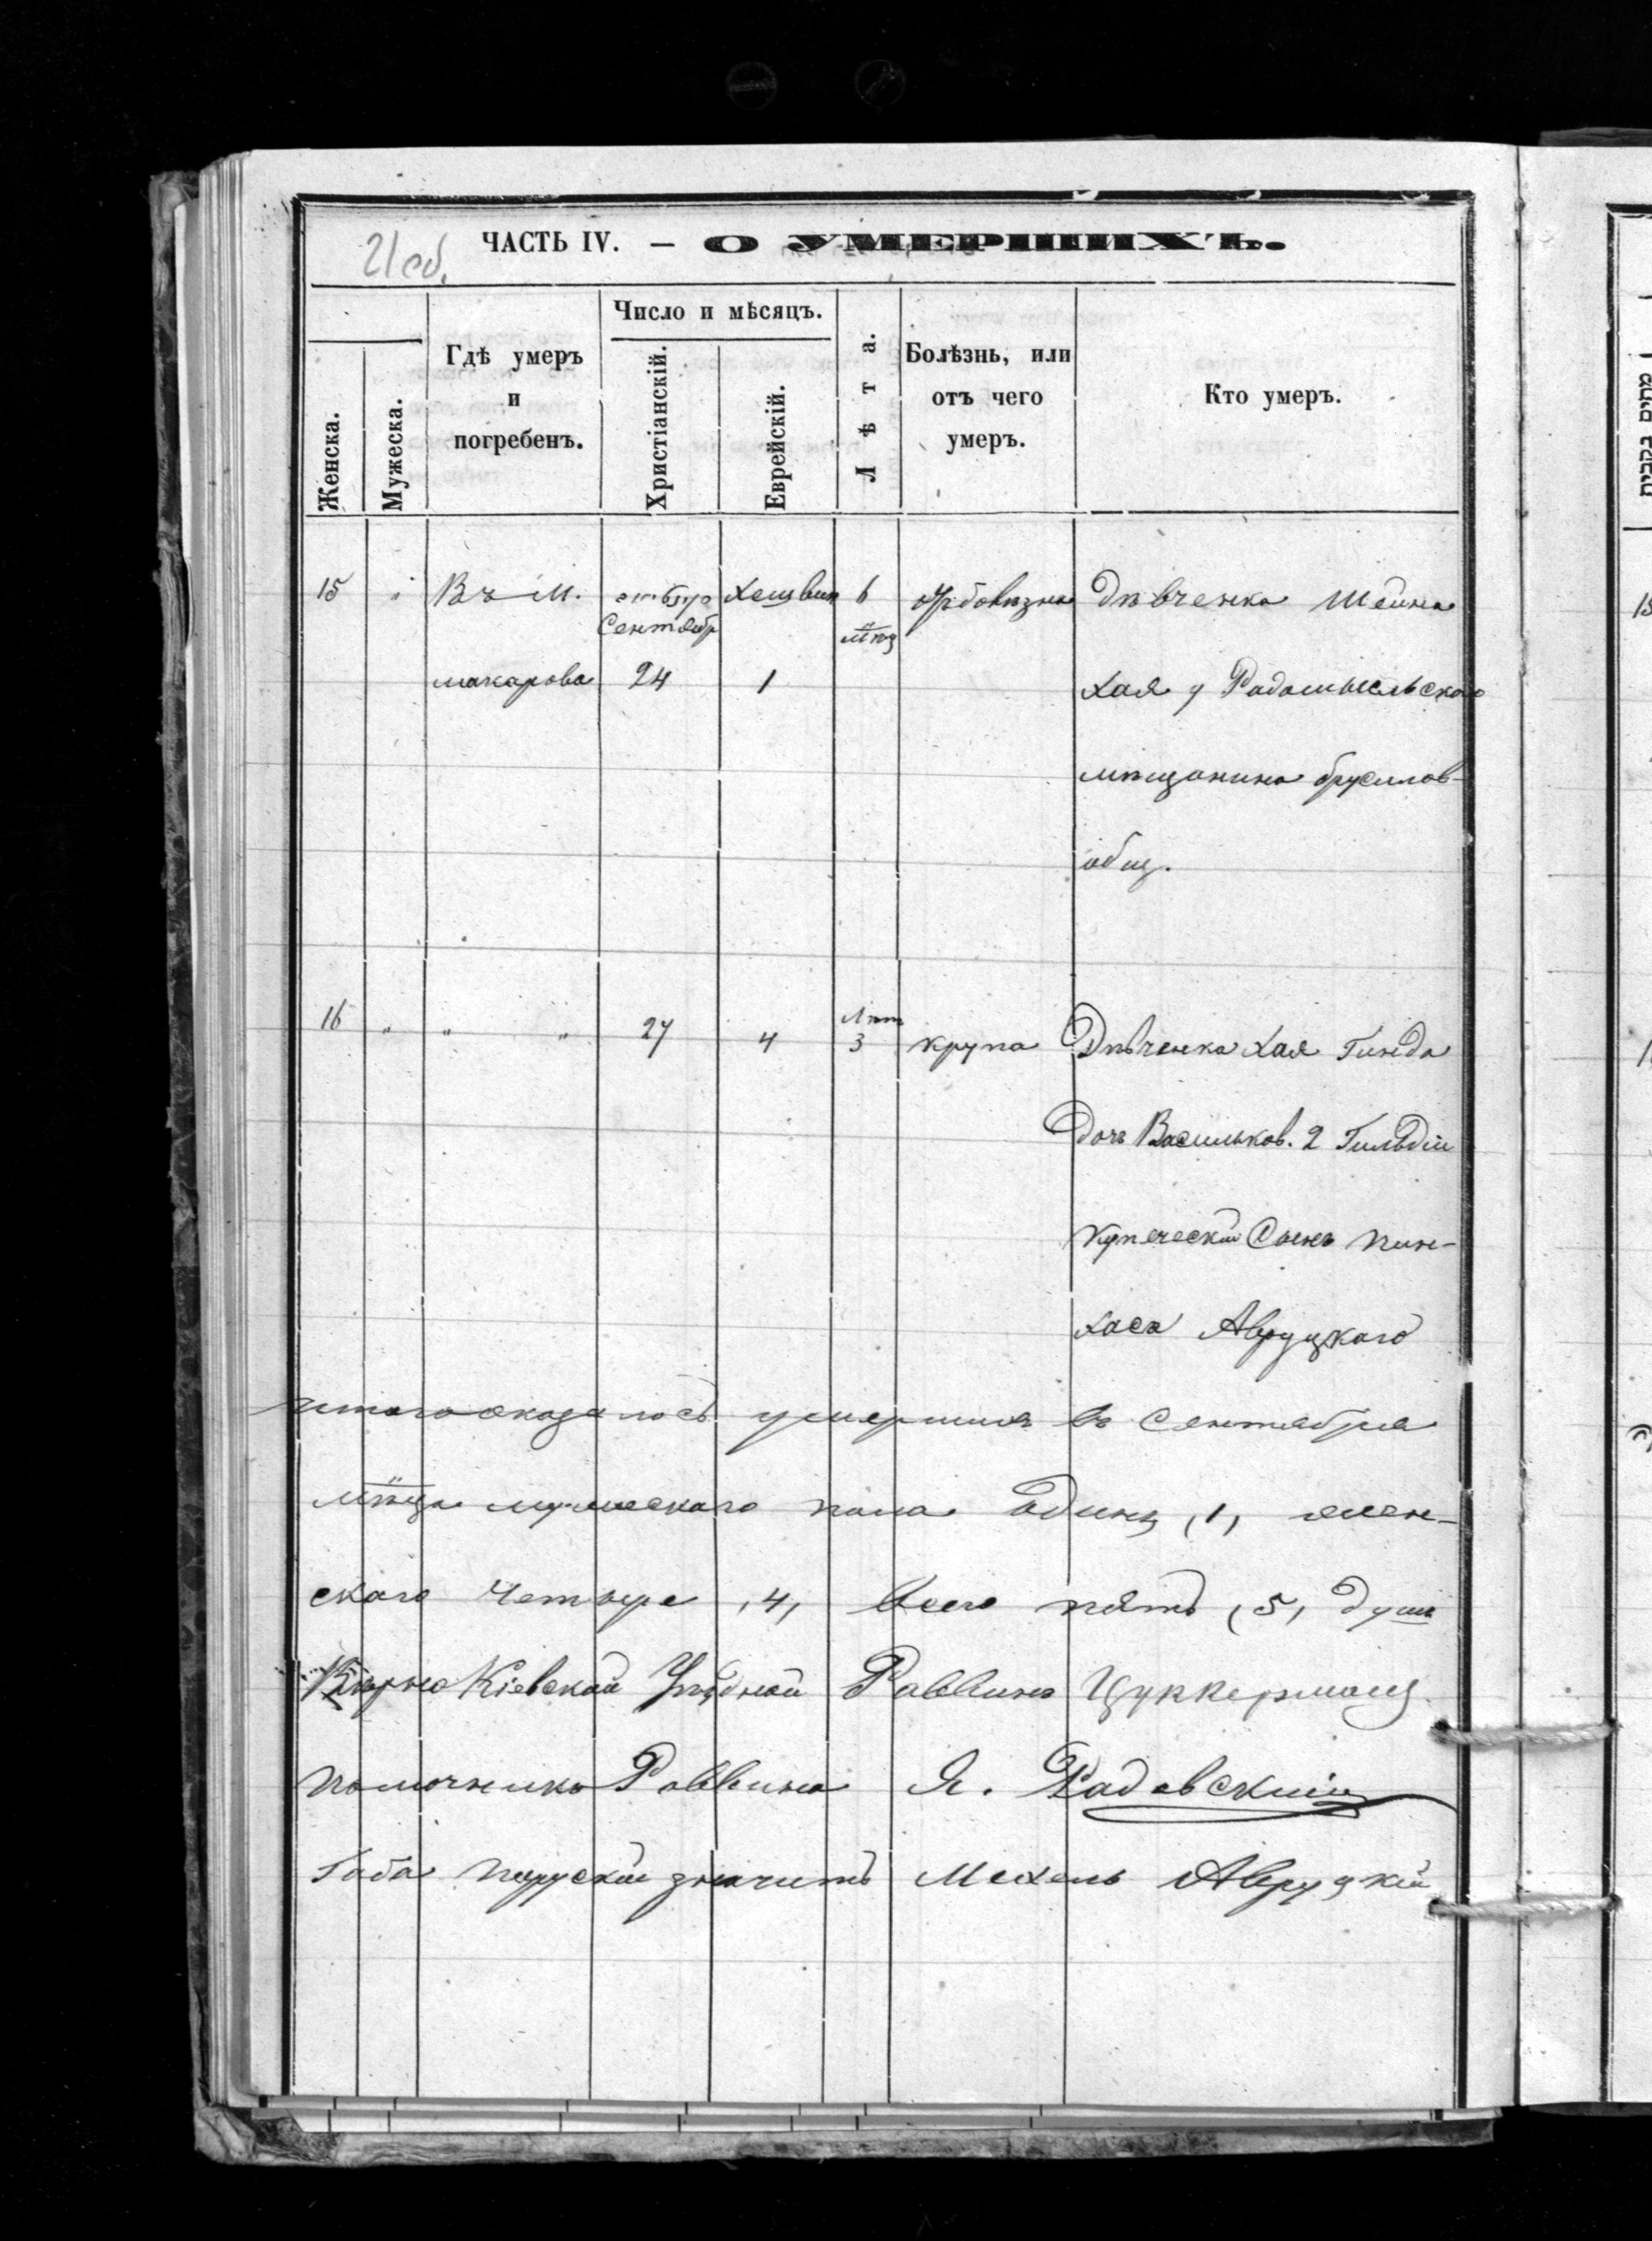 21 об.
ЧАСТЬ IV. — О УМЕРШИХЪ.
Женска.
Мужеска.
Гдѣ умеръ
и
погребенъ.
Число и мѣсяцъ.
Христіанскій.
Еврейскій.
Лѣта.
Болѣзнь, или
отъ чего
умеръ.
Кто умеръ.
15 " Въ М. октбяр Хешвин 6 Дѣвченка Шейна
Сентябр мѣц
макарова 24 1 Хая у Радомысльского
мѣщанина брусилов-
общ.
16 " " " 27 4 Лѣт 3 крупа Дѣвченка Хая Гинда
Дочь Васильков. 2 Гильдіи
купеческій Сынъ Пин-
хаса Авруцкаго
итого оказалось умершихъ въ Сентябрѣ
мѣца мужескаго пола Одинъ (1) жен-
скаго Четыре (4) всего пять (5) душъ
Вѣрно Кіевскій Уѣздной Раввинъ Цуккерманъ
Помочникъ Раввина Я. Радовский
Габа порускій значитъ Мехель Авруцкій